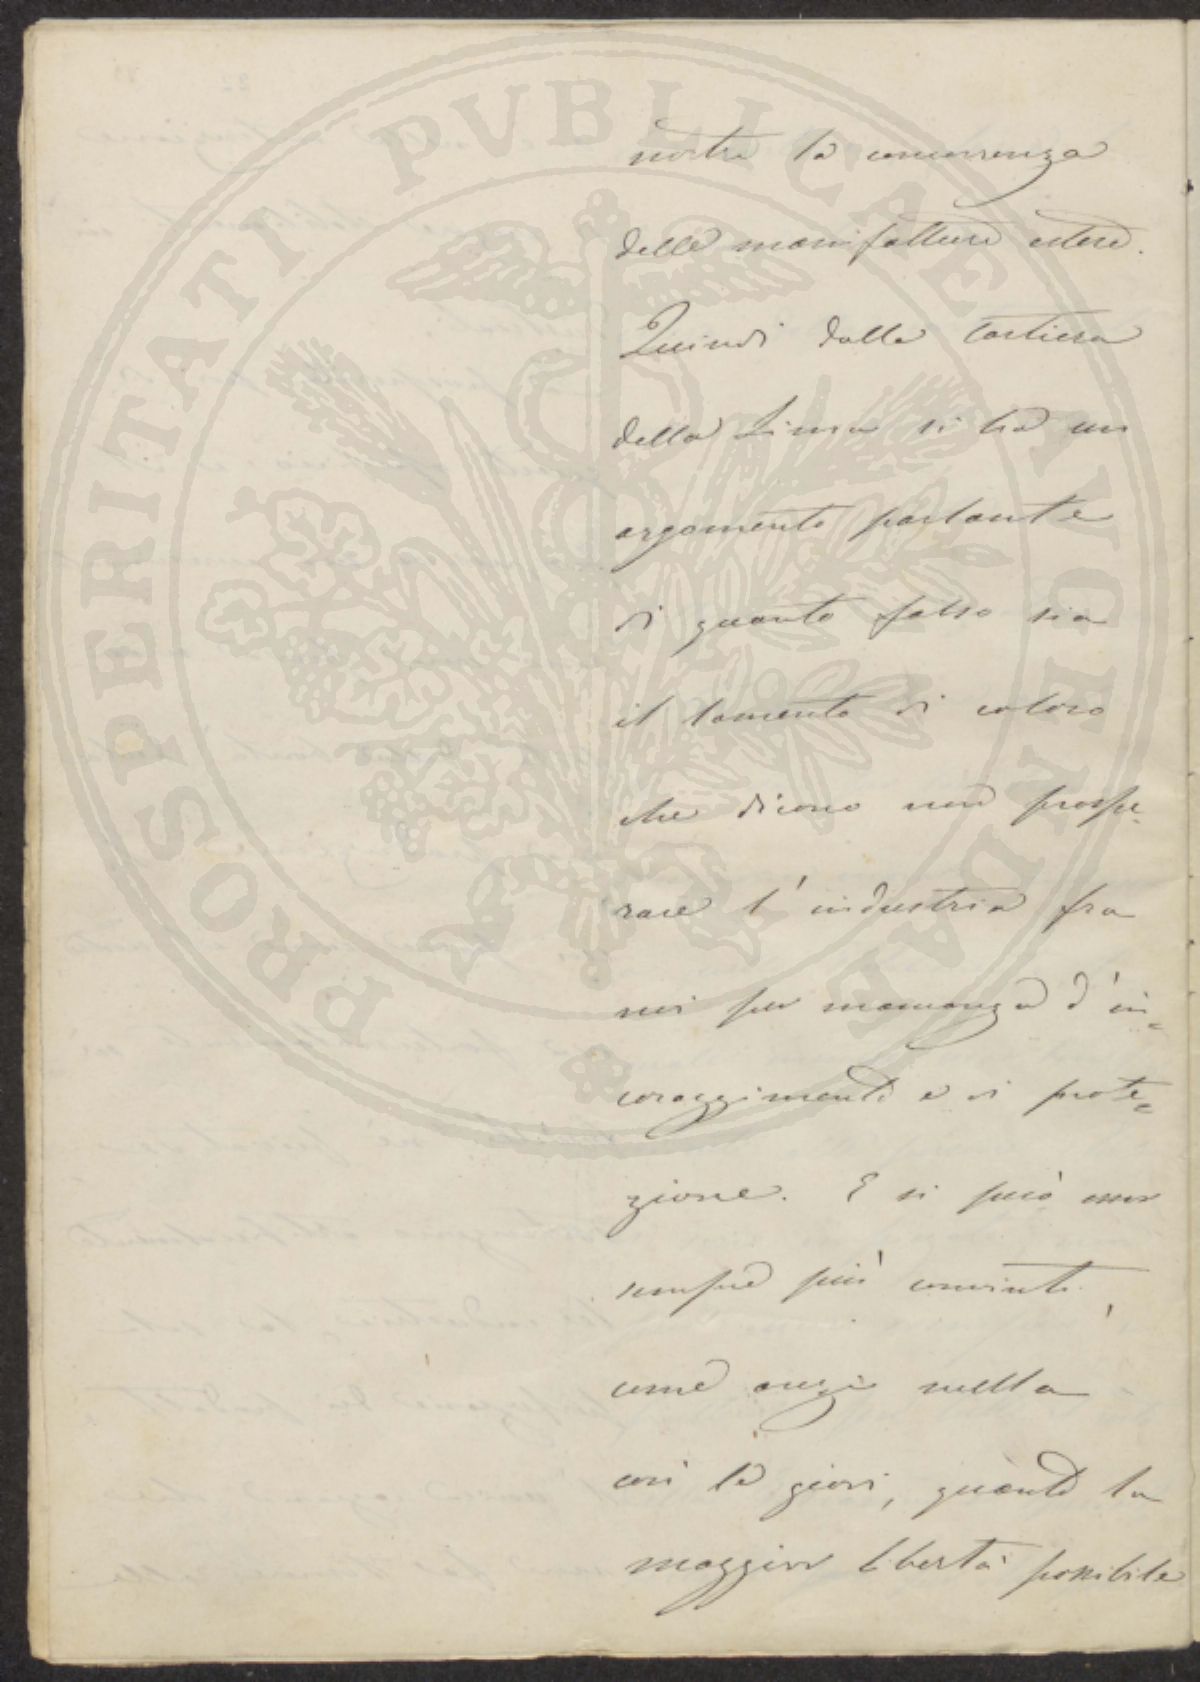 PROSPERITATI PVBLICAE AVGENDAE
nostra la concorrenza
delle manifatture estere.
Quindi dalla Cartiera
della Lima si ha un
argomento parlante
di quanto falso sia
il lamento di coloro
che dicono non prospe-
rare l'industria fra
noi per mancanza d'in-
coraggimenti e di prote-
zione. E si può esser
sempre più convinti,
come anzi nulla
così le giovi, quanto la
maggior libertà possibile